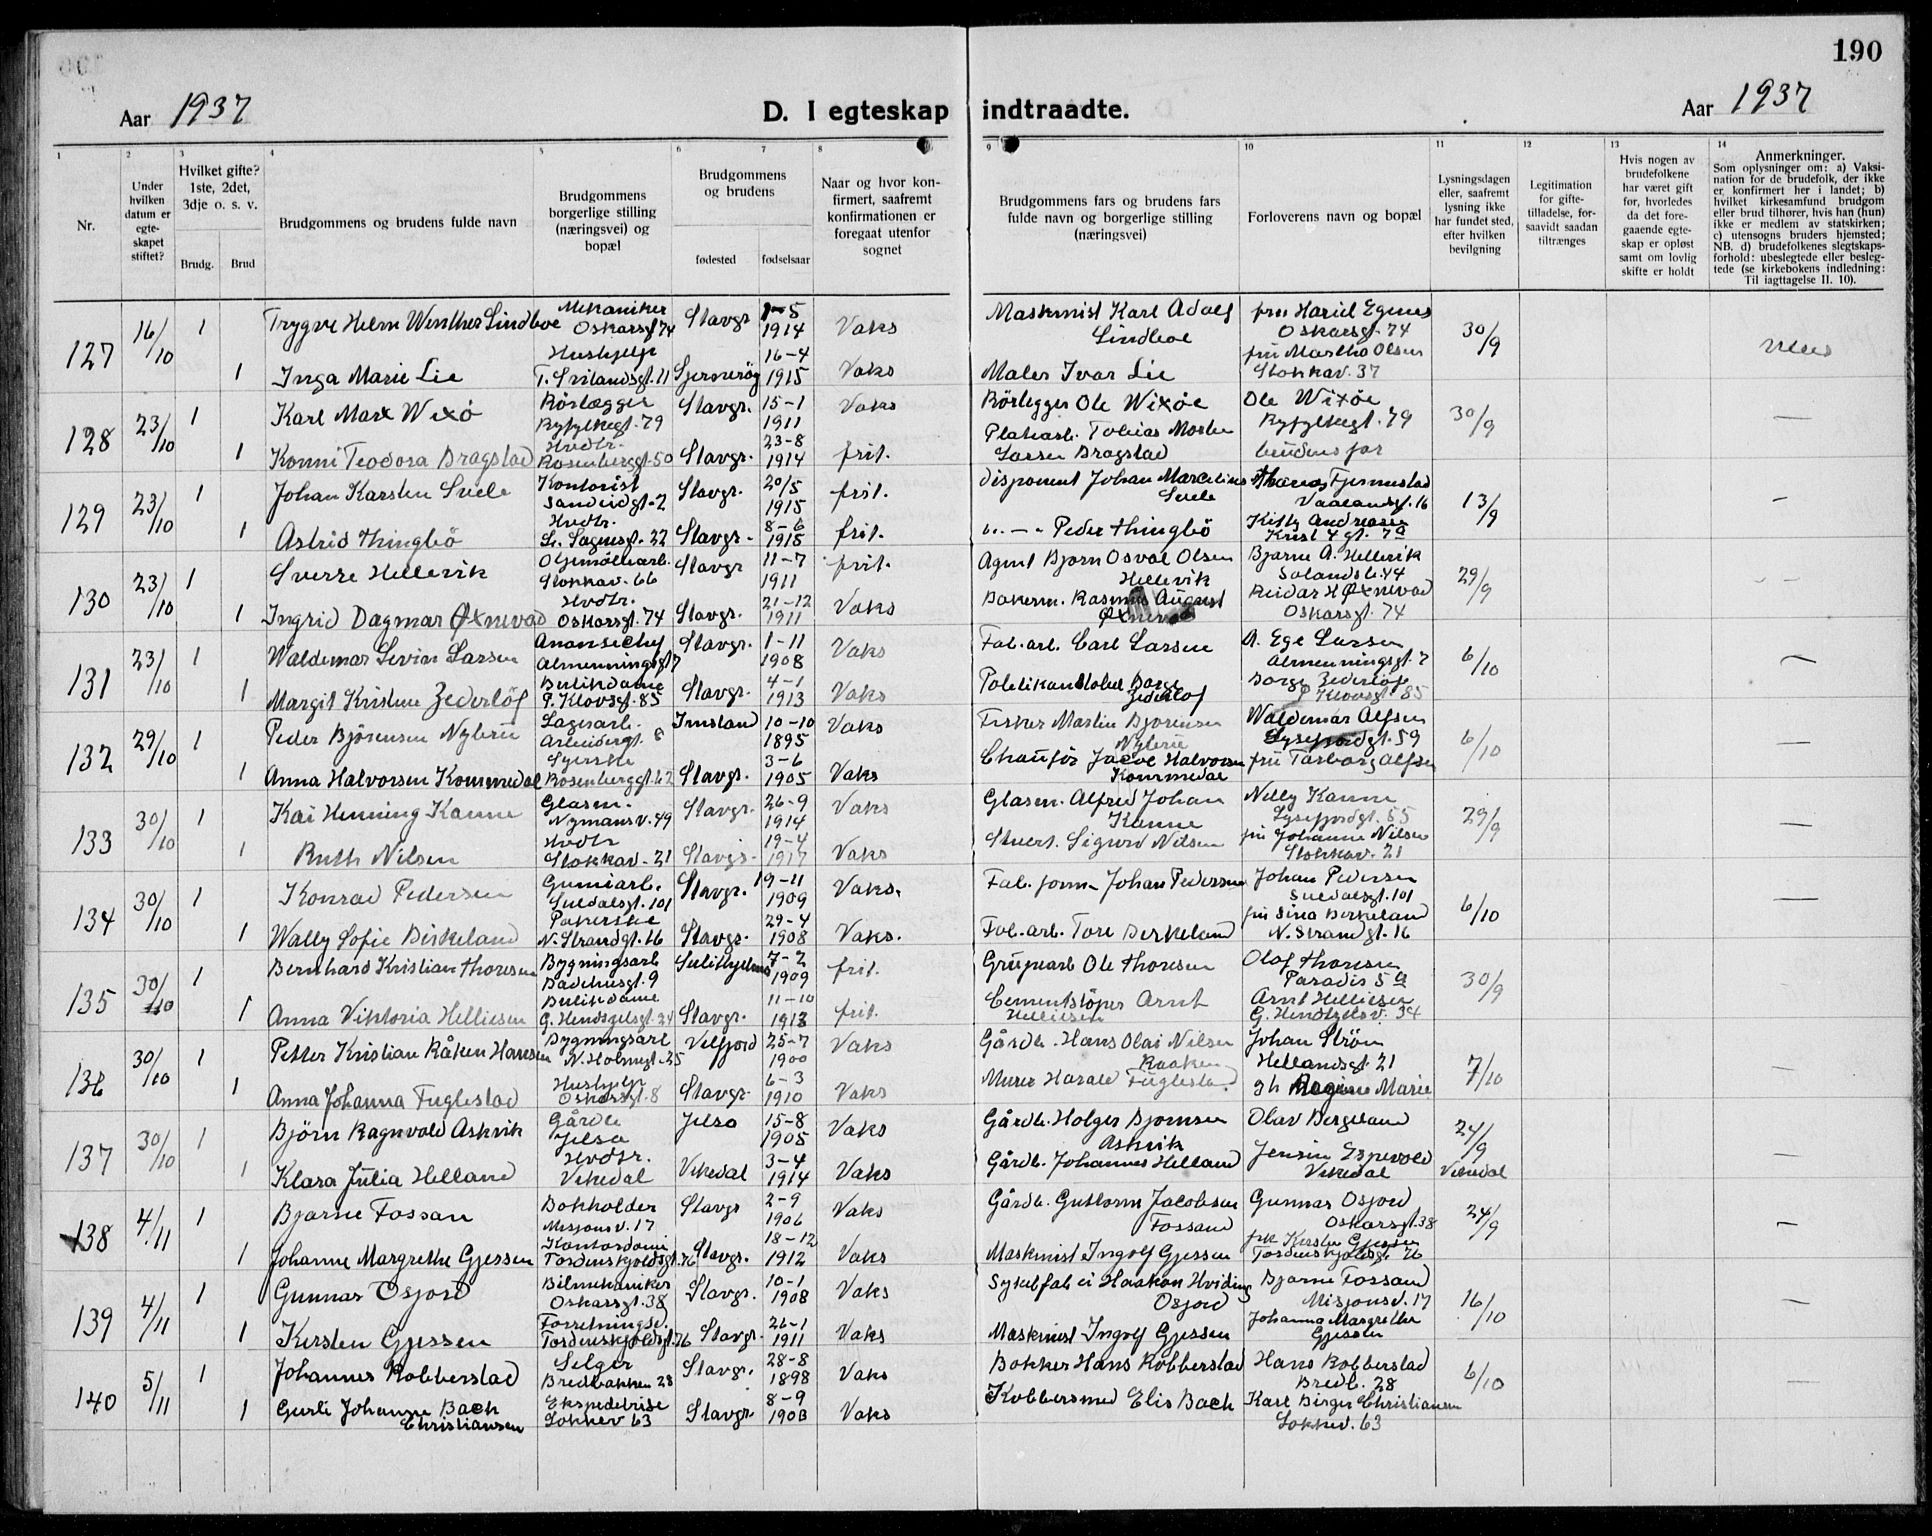 190
Aar 1937
D. I egteskap indtraadte.
Aar 1937
1
2
3
4
5
6
7
8
9
10
11
12
13
14
Nr.
Under hvilken datum er egteskapet stiftet?
Hvilket gifte? 1ste, 2det, 3dje o. s. v.
Brudg.
Brud
Brudgommens og brudens fulde navn
Brudgommens borgerlige stilling (næringsvei) og bopæl
Brudgommens og brudens
fødested
fødselsaar
Naar og hvor konfirmert, saafremt konfirmationen er foregaat utenfor sognet
Brudgommens fars og brudens fars fulde navn og borgerlige stilling (næringsvei)
Forloverens navn og bopæl
Lysningsdagen eller, saafremt lysning ikke har fundet sted, efter hvilken bevilgning
Legitimation for giftetilladelse, forsaavidt saadan tiltrænges
Hvis nogen av brudefolkene har været gift før, hvorledes da det foregaaende egteskap er opløst samt om lovlig skifte er holdt
Anmerkninger.
Som oplysninger om: a) Vaksination for de brudefolk, der ikke er konfirmert her i landet; b) hvilket kirkesamfund brudgom eller brud tilhører, hvis han (hun) ikke er medlem av statskirken; c) utensogns bruders hjemsted; NB. d) brudefolkenes slegtskapsforhold: ubeslegtede eller beslegtede (se kirkebokens indledning: Til iagttagelse II. 10).
127 16/10 1 Trygve Helm Winther Lindboe Mekaniker Oskarsgt 74 Stavgr 1-5 1914 Vaks Maskinist Karl Adolf Lindboe Oskarsgt. 74 30/9
1 Inga Marie Lie Hushjelp 16-4 1915 Vaks Maler Ivar Lie fru Martha Olsen Stokkav. 37
128 23/10 1 Karl Marx Wixö Rörlægger Ryfylkegt. 79 Stavgr. 15-1 1911 Vaks Rörlegger Ole Wixöe Ole Wixöe Ryfylkegt. 79 30/9 —
1 Konni Teodora Bragstad Hvdtr. Rosenberggt. 50 Stavgr. 23-8 1914 frit. Platearb. Tobias Larsen Bragstad brudens far
129 23/10 1 Johan Karsten Svele Kontorist Sandeidgt. 2 Stavgr. 20/5 1915 frit. Disponent Johan Marcelius Svele Thomas Fjermestad Vaalandsgt. 16 13/9 -
1 Astrid Thingbö Hvdtr. 22 Stavgr. 8-6 1915 frit. " — " Peder Thingbö Kitty Andreasen Krist 4 gt. 7a
130 23/10 1 Sverre Hellevik Stokkav. 66 Stavgr 11-7 1911 frit. Agent Bjorn Osval Olsen Hellevik Bjarne A. Hellevik 29/9 - -
1 Ingrid Dagmar Øxnevad Hvdtr. Oskarsgt. 74 Stavgr. 21-12 1911 Vaks Bakerm. Rasmus August Øxnevad Reidar H Øxnevad Oskarsgt. 74
131 23/10 1 Waldemar Sevin Larsen Almenningsgt 7 Stavgr. 1-11 1908 Vaks Fab. arb. Carl Larsen A. Ege Larsen Almenningsgt. 7 6/10 —
1 Margit Kristine Zederlöf Butikdame P. Klovsgt. 85 Stavgr. 4-1 1913 Vaks Borge Zederlöf Borge Zederlöf P Klovsgt. 85
132 29/10 1 Peder Björensen Nybrü Lagerarb. Arbeidergt. 8 Imsland 10-10 1895 Vaks Fisker Martin Bjorensen Nybrü Waldemar Alfsen Lysefjordgt. 59 6/10 —
1 Anna Halvorsen Kommedal Syerske Rosenberggt. 62 Stavgr. 3-6 1905 Vaks Chaufför Jacob Halvorsen Kommedal fru Tarborg Alfsen
133 30/10 1 Kai Henning Kanne Glasm. Nymansv. 49 Stavgr. 26-9 1914 Vaks Glasm. Alfred Johan Kanne Nelly Kanne Lysefjordgt. 55 29/9 —
1 Ruth Nilsen Hvdtr Stokkav. 21 Stavgr. 19-4 1917 Vaks Stuert. Sigurd Nilsen fru Johanne Nilsen Stokkav. 21
134 30/10 1 Konrad Pedersen Gumiarb. Suldalsgt. 101 Stavgr. 19-11 1909 Vaks. Fab. form. Johan Pedersen Johan Pedersen Suldalsgt. 101 6/10 —
1 Wally Sofie Birkeland Pakerske N. Strandgt. 16 Stavgr. 29-4 1908 Vaks. Fab. arb. Tore Birkeland fru Sina Birkeland N. Strandgt. 16
135 30/10 1 Bernhard Kristian Thoresen Bygningsarb Badehusgt. 9 Sulitjelma 7-2 1909 frit. Grubearb Ole Thoresen Olof Thoresen Paradis 5a 30/9 —
1 Anna Viktoria Helliesen Butikdame 34 Stavgr. 11-10 1913 frit. Cementstöper Arnt Helliesen Arnt Helliesen 34
136 30/10 1 Petter Kristian Råken Hansen Bygningsarb N. Holmegt. 25 Velfjord 25-7 1900 Vaks Gårdb. Hans Olai Nilsen Raaken Johan Ström Hellandsgt. 21 7/10 —
1 Anna Johanna Fuglestad Hushjelp Oskarsgt. 8 Stavgr. 6-3 1910 Vaks Murer Harald Fuglestad Marie
137 30/10 1 Björn Ragnvald Askvik Gårdb Jelsa Jelsa 15-8 1905 Vaks Gårdb. Holger Bjornsen Askvik Olav Bergeland 24/9 Vikedal —
1 Klara Julia Helland Hvdtr. Vikedal Vikedal 3-4 1914 Vaks Gårdb. Johannes Helland Jensine Espevold Vikedal
138 4/11 1 Bjarne Fossan Bokholder Misjonsv. 17 Stavgr 2-9 1906 Vaks Gårdb. Guttorm Jacobsen Fossan Gunnar Osjord Oskarsgt. 38 24/9 -
1 Johanne Margrethe Gjessen Kontordame Tordenskjoldsgt. 76 Stavgr. 18-12 1912 Vaks Maskinist Ingolf Gjessen frk Kirsten Gjessen Tordenskjoldsgt 76
139 4/11 1 Gunnar Osjord Bilmekaniker Oskarsgt. 38 Stavgr. 10-1 1908 Vaks Haakon Hviding Osjord Bjarne Fossan Misjonsv. 17 16/10 —
1 Kirsten Gjessen Forretningsd. Tordenskjoldsgt. 76 Stavgr. 26-1 1911 Vaks Maskinist Ingolf Gjessen Johanna Margrethe Gjessen
140 5/11 1 Johannes Robberstad Selger Bredbakken 28 Stavgr. 28-8 1898 Vaks Bokker Hans Robberstad Hans Robberstad Bredb. 28 6/10 —
1 Gurli Johanne Bach Christiansen Ekspeditrise Lokkev 63 Stavgr. 8-9 1903 Vaks Kobbersmed Elis Bach Karl Birger Christiansen Lokkev. 63